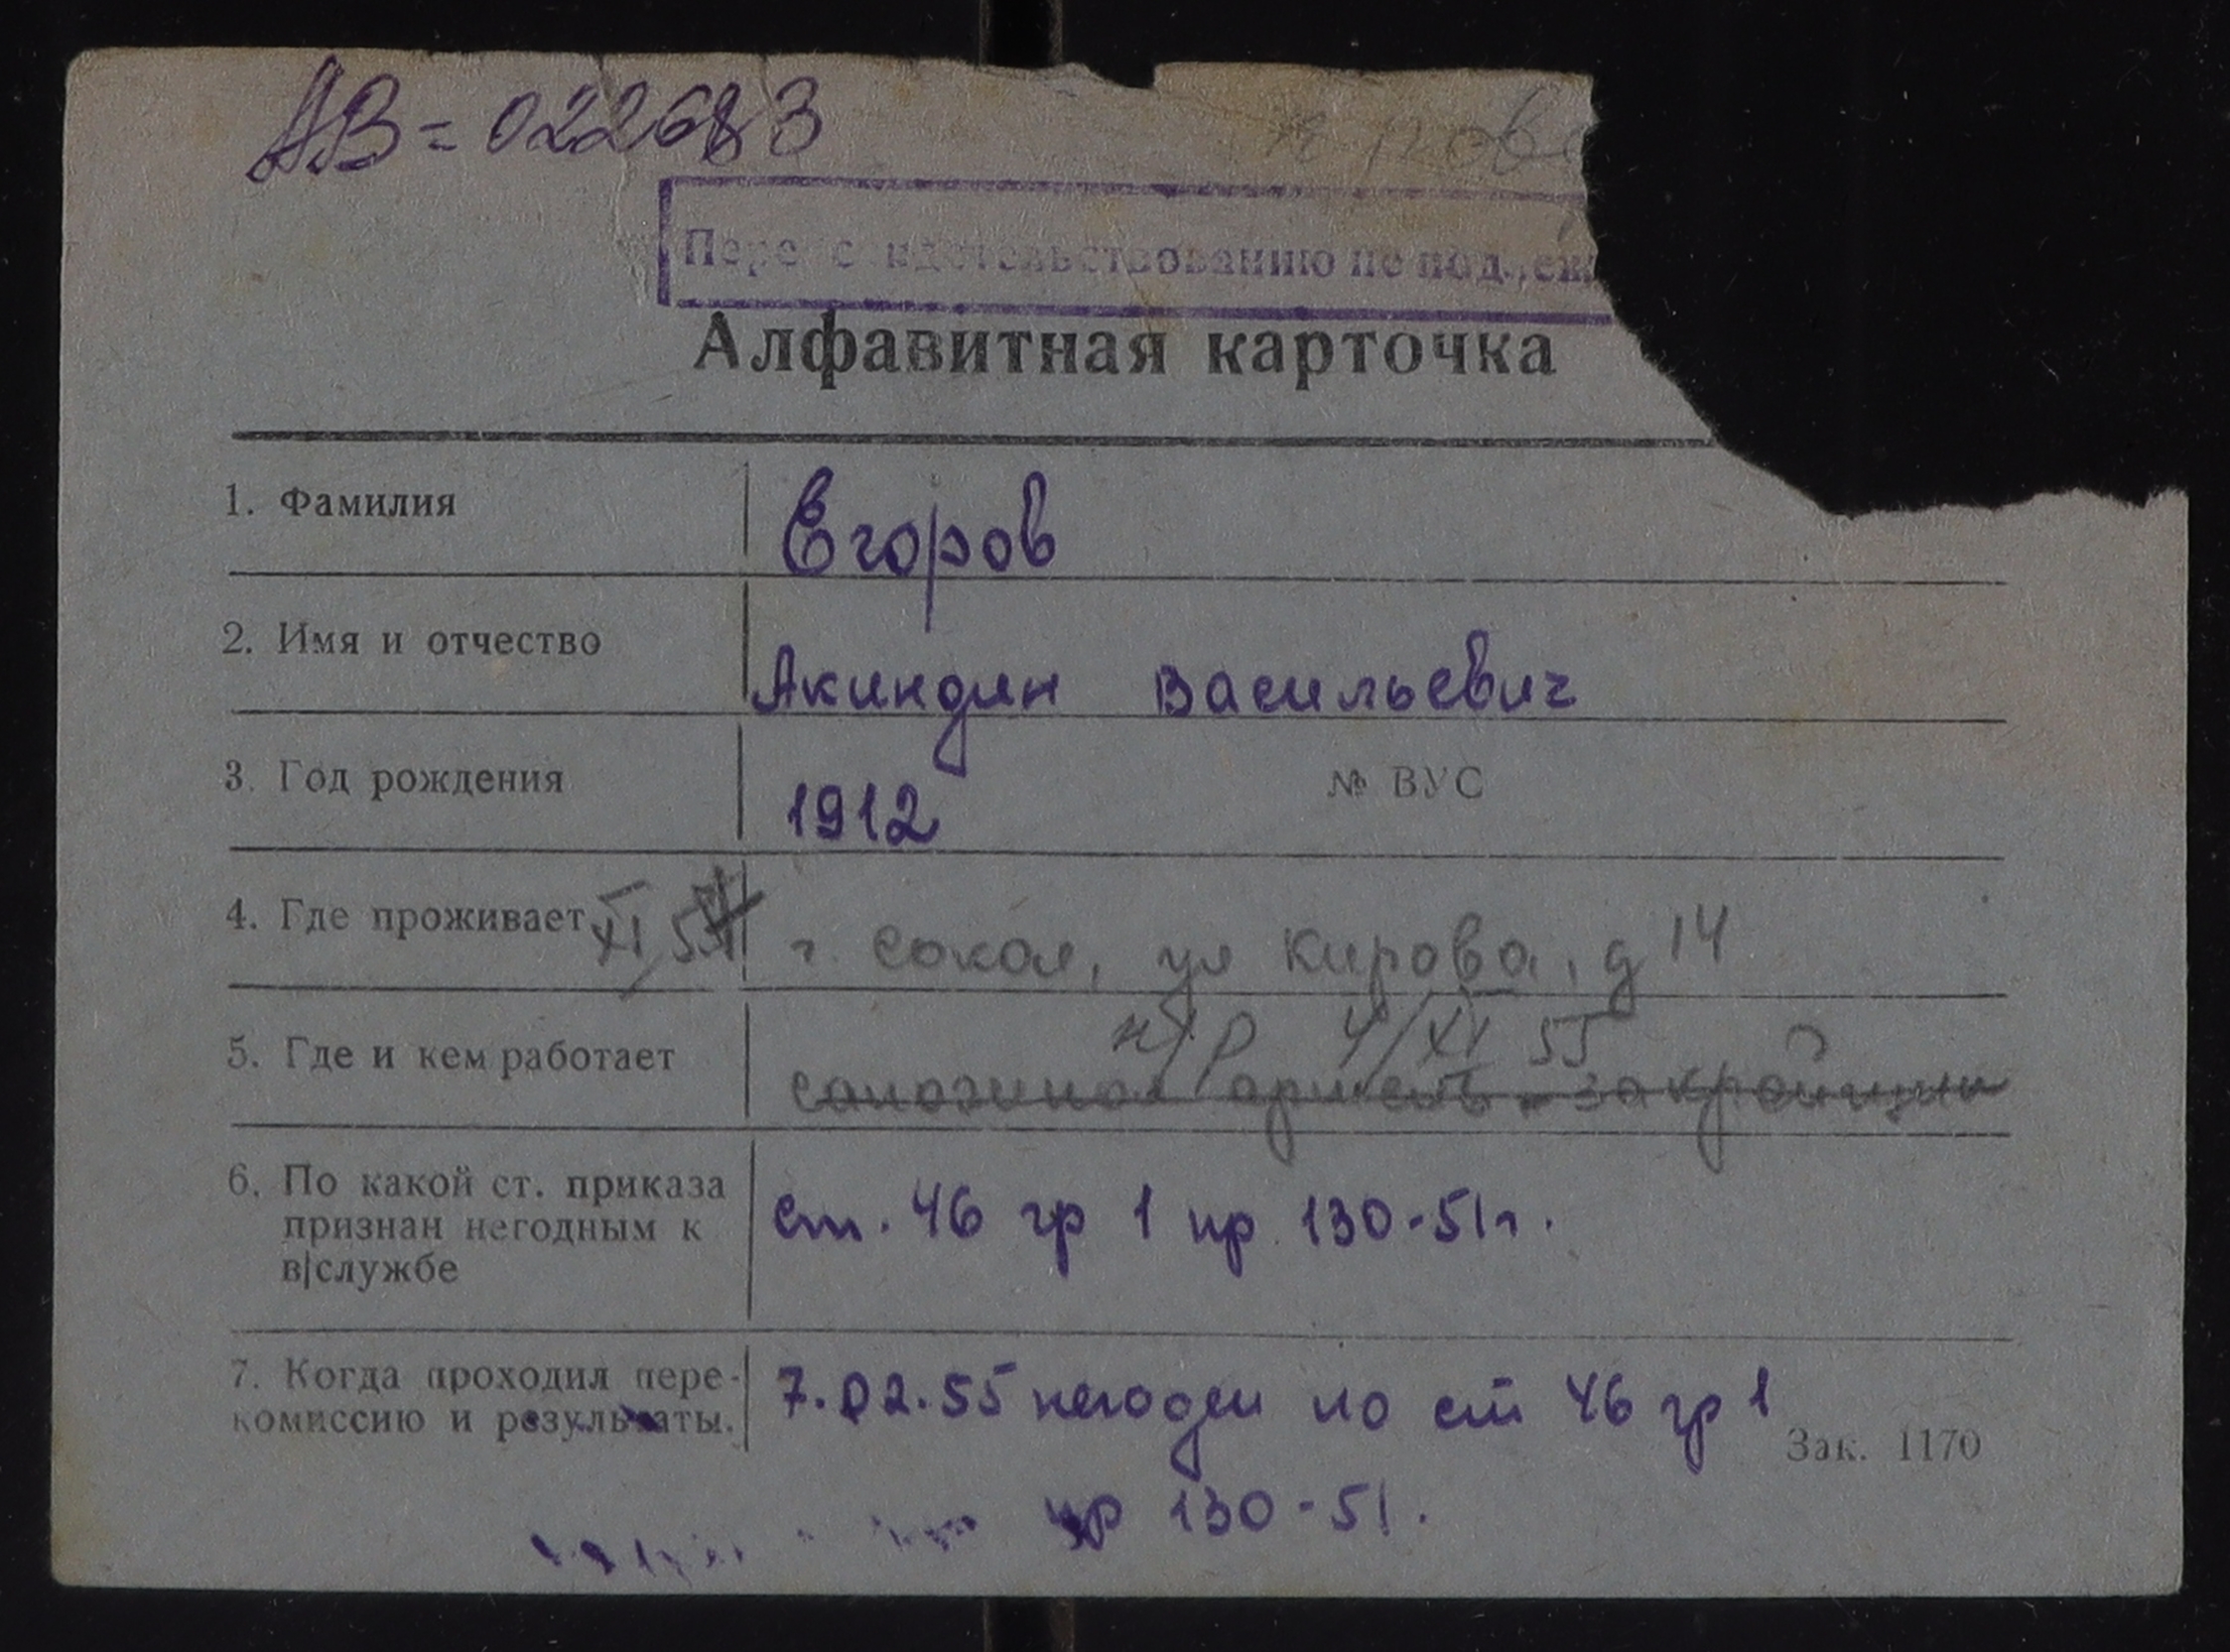 АВ=022683
Переосвидетельствованию не подлеж
Алфавитная карточка
1. Фамилия Егоров
2. Имя и отчество Акиндин Васильевич
3. Год рождения 1912 № ВУС
4. Где проживает г. Сокол, ул Кирова, д 14
н/р 4/XI 55
5. Где и кем работает сапожная артель - закройщик
6. По какой ст. приказа
признан негодным к
в|службе
ст. 46 гр 1 пр. 130-51г.
7. Когда проходил пере-
комиссию и результаты.
7.02.55 негоден по ст 46 гр 1
Зак. 1170
пр 130-51.